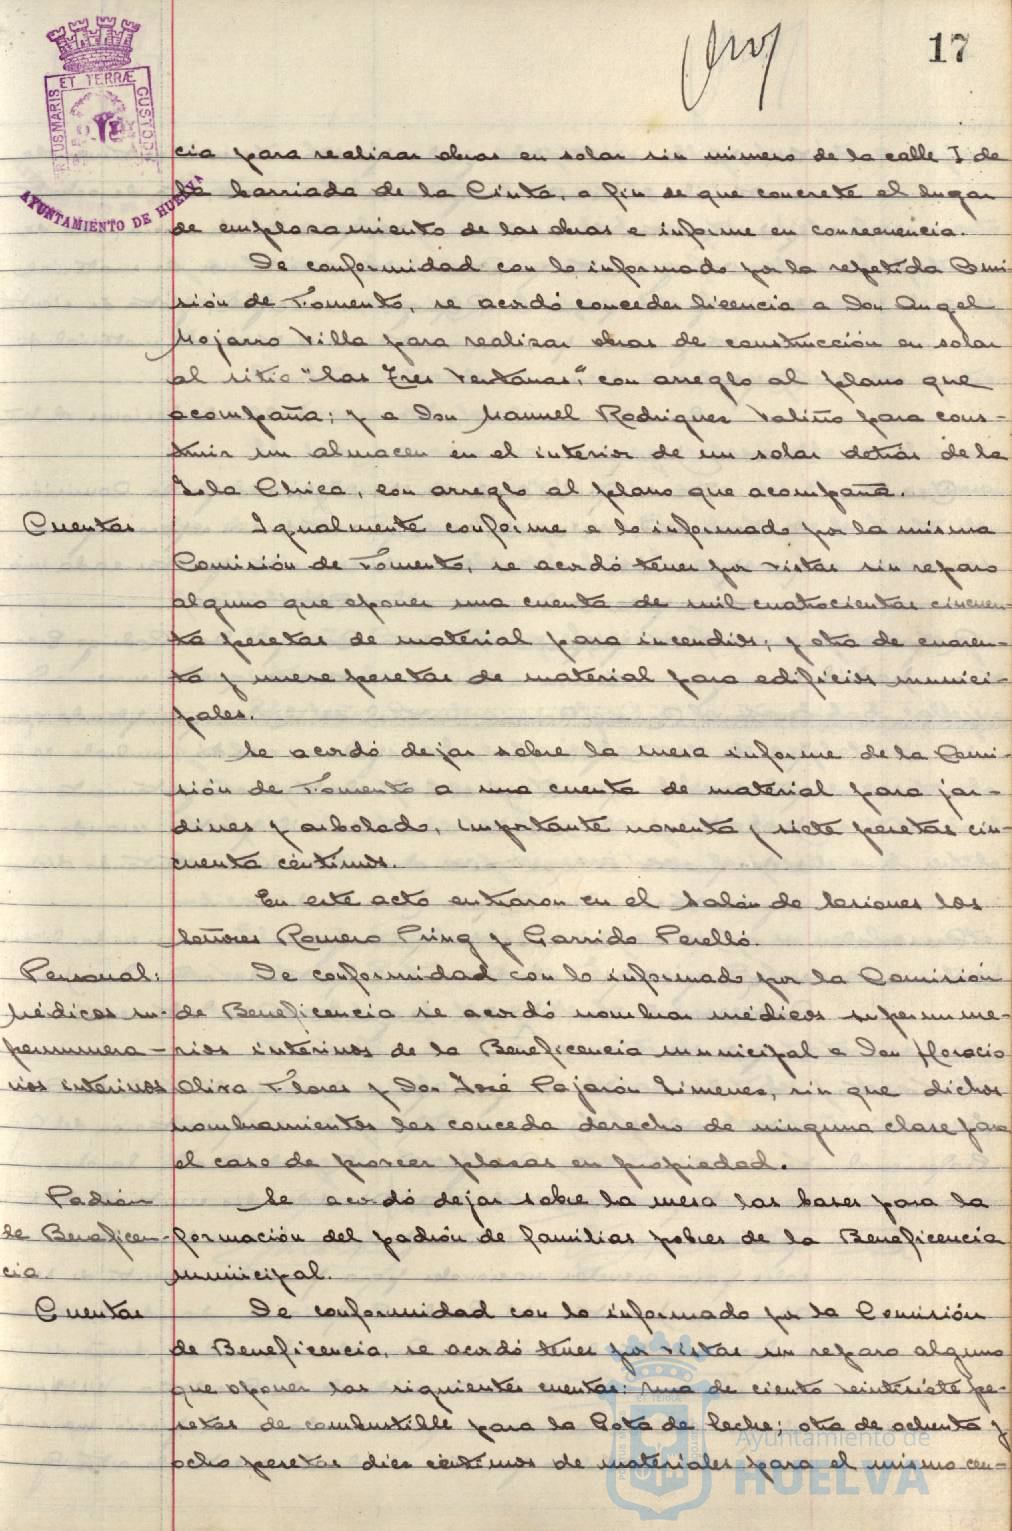 17
ET TERRÆ
CUSTODIA
AYUNTAMIENTO DE HUELVA
cia para realizar obras en solar sin número de la calle I de
la barriada de la Cinta, a fin de que concrete el lugar
de emplazamiento de las obras e informe en consecuencia.
De conformidad con lo informado por la repetida Comi-
sión de Fomento, se acordó conceder licencia a Don Angel
Mojarro Villa para realizar obras de construcción en solar
al sitio "Las Tres Ventanas", con arreglo al plano que
acompaña; y a Don Manuel Rodriguez Valiño para cons-
truir un almacen en el interior de un solar detrás de la
Isla Chica, con arreglo al plano que acompaña.
Cuentas
Igualmente conforme a lo informado por la misma
Comisión de Fomento, se acordó tener por vistas sin reparo
alguno que oponer una cuenta de mil cuatrocientas cincuen-
ta pesetas de material para incendios; y otra de cuaren-
ta y nueve pesetas de material para edificios munici-
pales.
Se acordó dejar sobre la mesa informe de la Comi-
sión de Fomento a una cuenta de material para jar-
dines y arbolado, importante noventa y siete pesetas cin-
cuenta céntimos.
En este acto entraron en el Salón de Sesiones los
Señores Romero Pring y Garrido Perelló.
Personal:
Médicos su-
pernumera-
rios interinos
De conformidad con lo informado por la Comisión
de Beneficencia se acordó nombrar médicos supernume-
rios interinos de la Beneficencia municipal a Don Horacio
Oliva Flores y Don José Pajarón Jimenez, sin que dichos
nombramientos les conceda derecho de ninguna clase para
el caso de proveer plazas en propiedad.
Padrón
de Beneficen-
cia
Se acordó dejar sobre la mesa las bases para la
formación del padrón de familias pobres de la Beneficencia
municipal.
Cuentas
De conformidad con lo informado por la Comisión
de Beneficencia, se acordó tener por vistas sin reparo alguno
que oponer las siguientes cuentas: una de ciento veintisiete pe-
setas de combustible para la Gota de Leche; otra de ochenta y
ocho pesetas diez céntimos de materiales para el mismo cen-
Ayuntamiento de
HUELVA